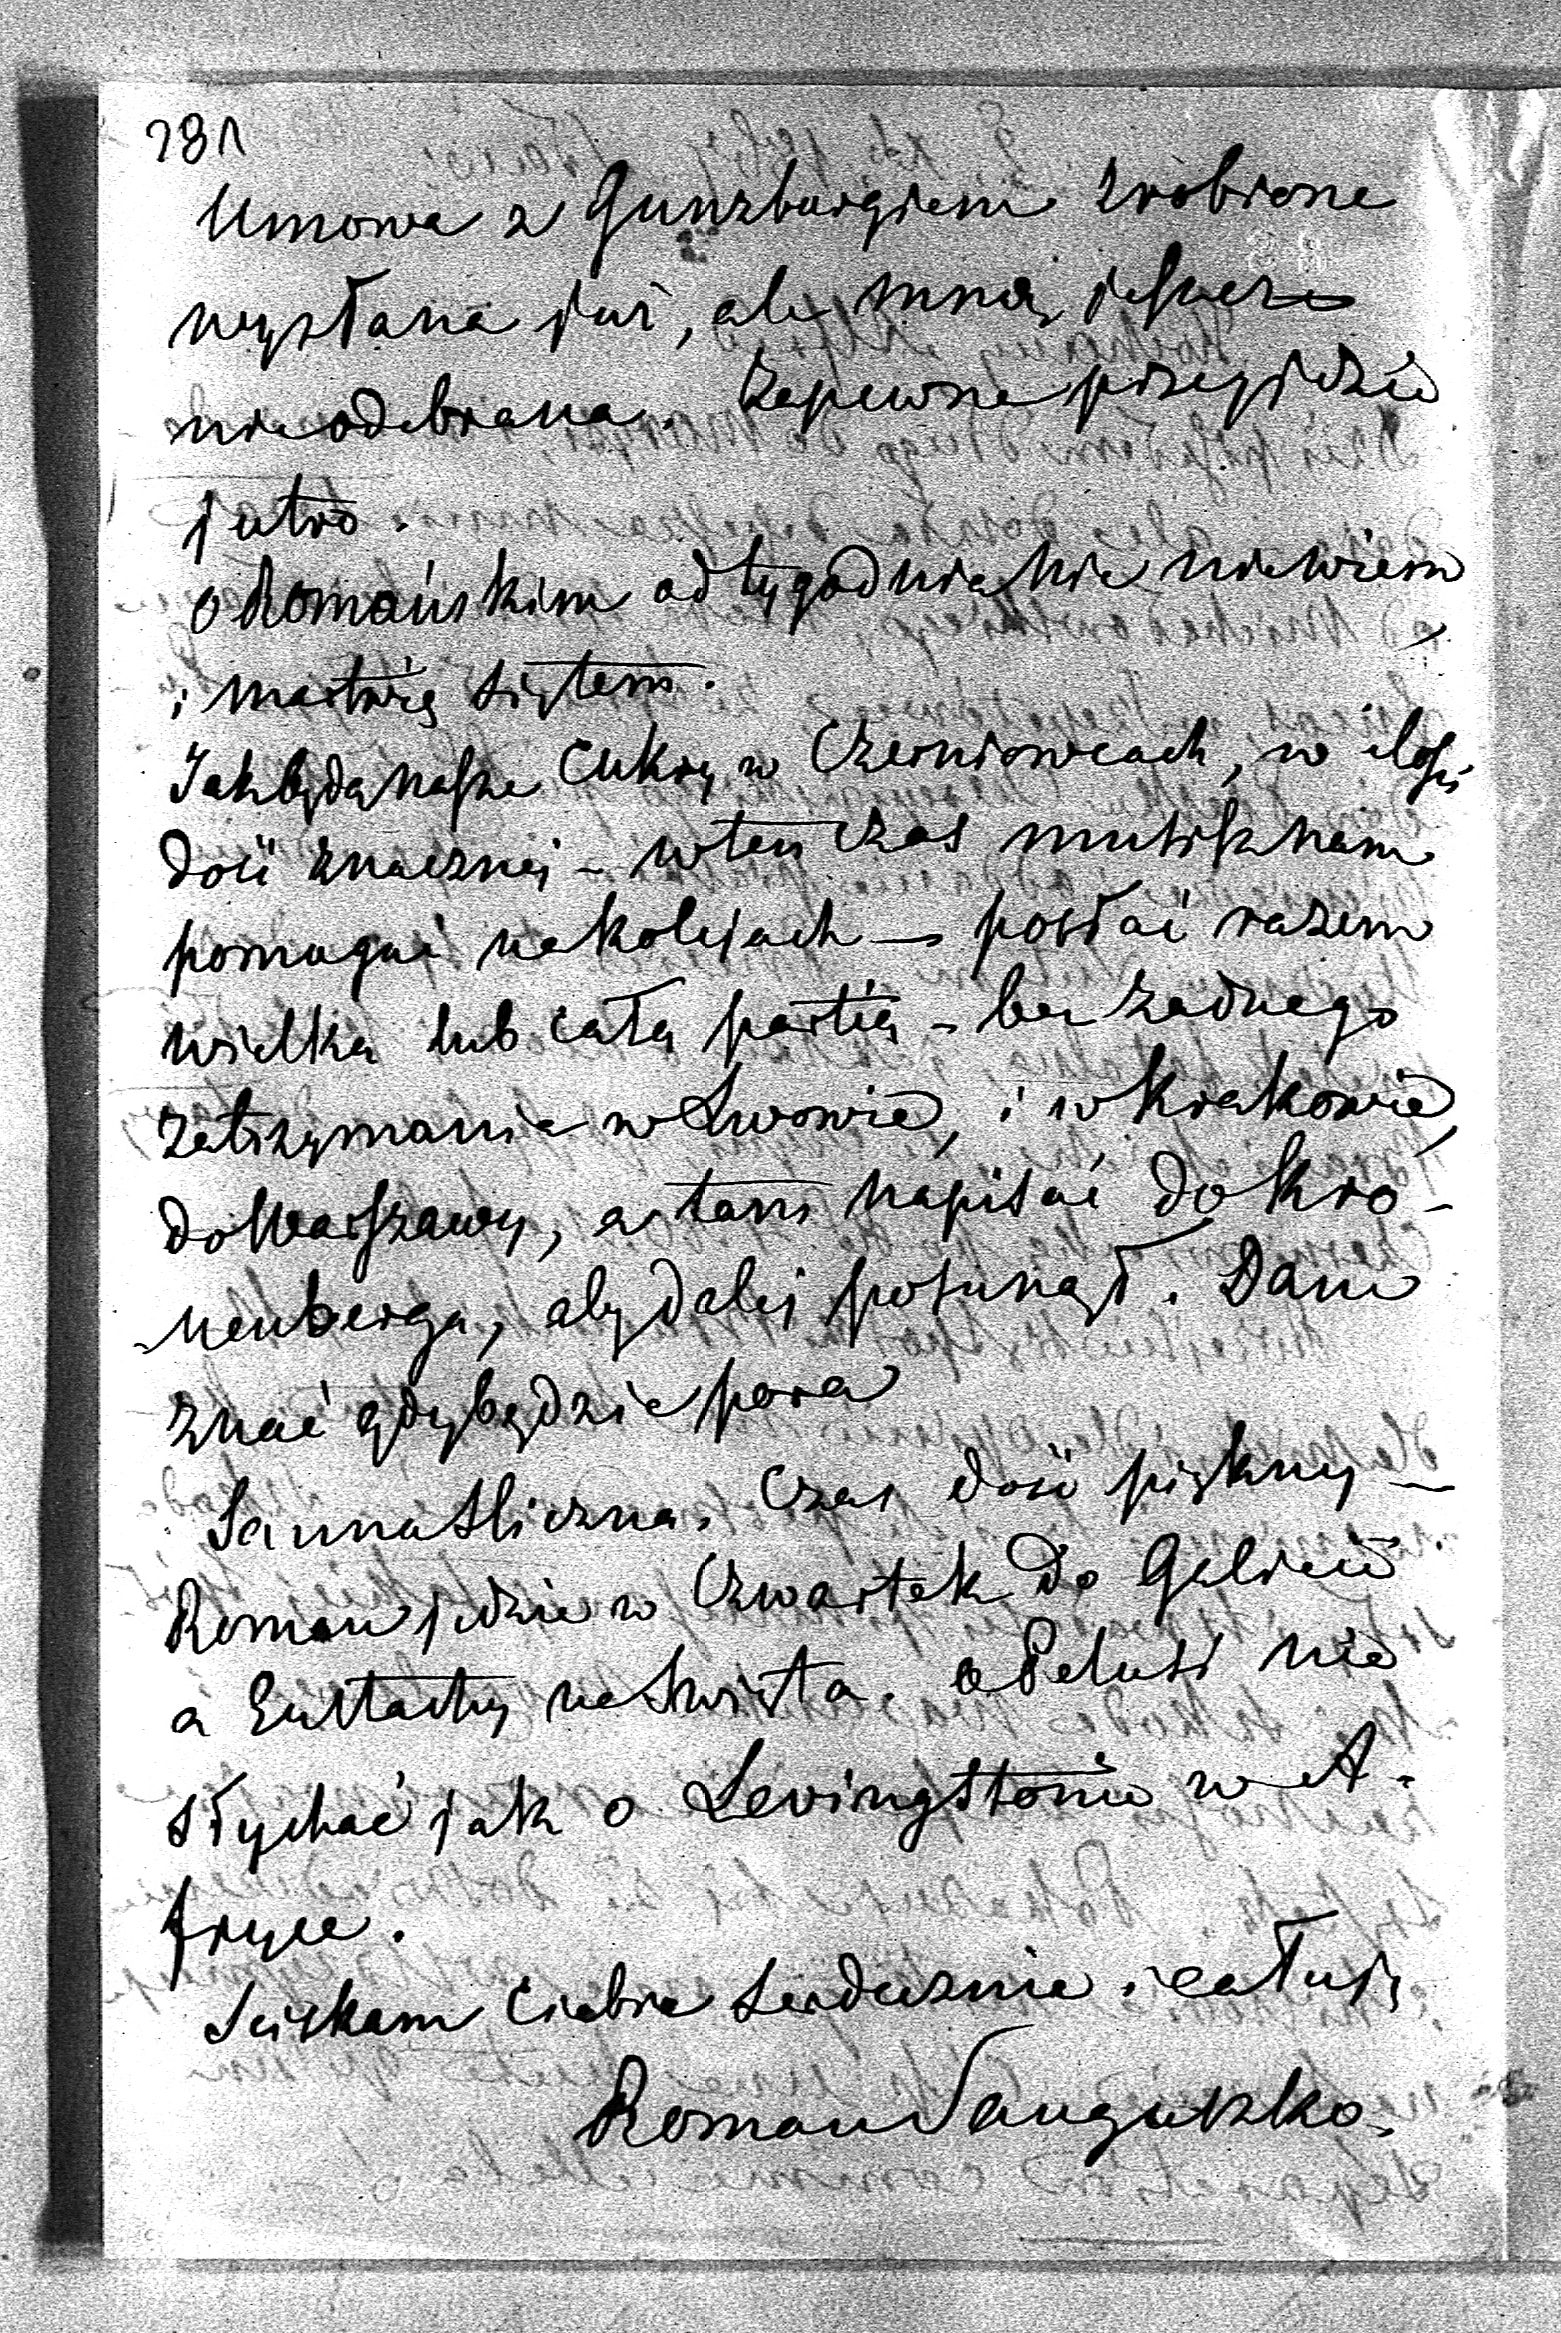 281
Umowa z Gunzburgiem zrobiona
wysłana już, ale mną jeszcze
nieodebrana. Zapewne przyjdzie
jutro.
o Romańskim od tygodnia nic niewiem
i martwię się tem.
Jak będą nasze Cukry w Czerniowcach, w ilości
dość znacznej – wten czas musisz nam
pomagać na kolejach – posłać razem
wielką lub całą partią – bez żadnego
zatrzymania w Lwowie, i w Krakowie,
do Warszawy, a tam napisać do Kro-
-nenberga, aby dalej posunął. Dam
znać gdy będzie pora
Sanna śliczna, Czas dość piękny –
Roman jedzie w Czwartek do Galicii
a Eustachy na Swięta. o Pelusi nie
słychać jak o Levingstonie w A-
fryce.
Sciskam Ciebie serdecznie i całuję
Roman Sanguszko.